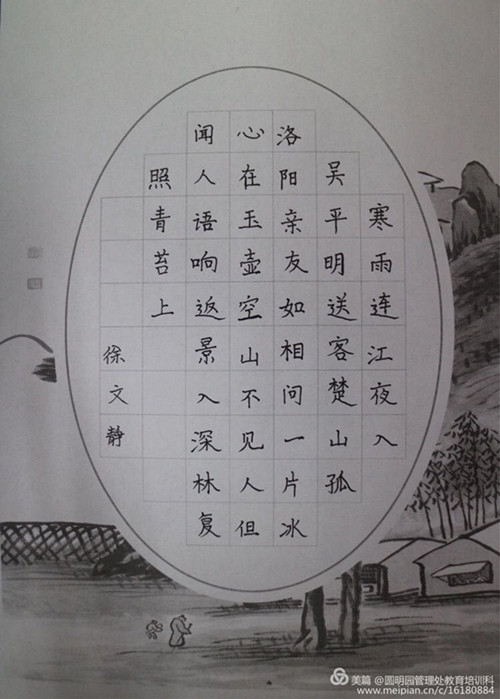 寒雨连江夜入
吴平明送客楚山孤
洛阳亲友如相问一片冰
心在玉壶空山不见人但
闻人语响返景入深林复
照青苔上
徐文静
美篇 @圆明园管理处教育培训科
www.meipian.cn/c/16180884